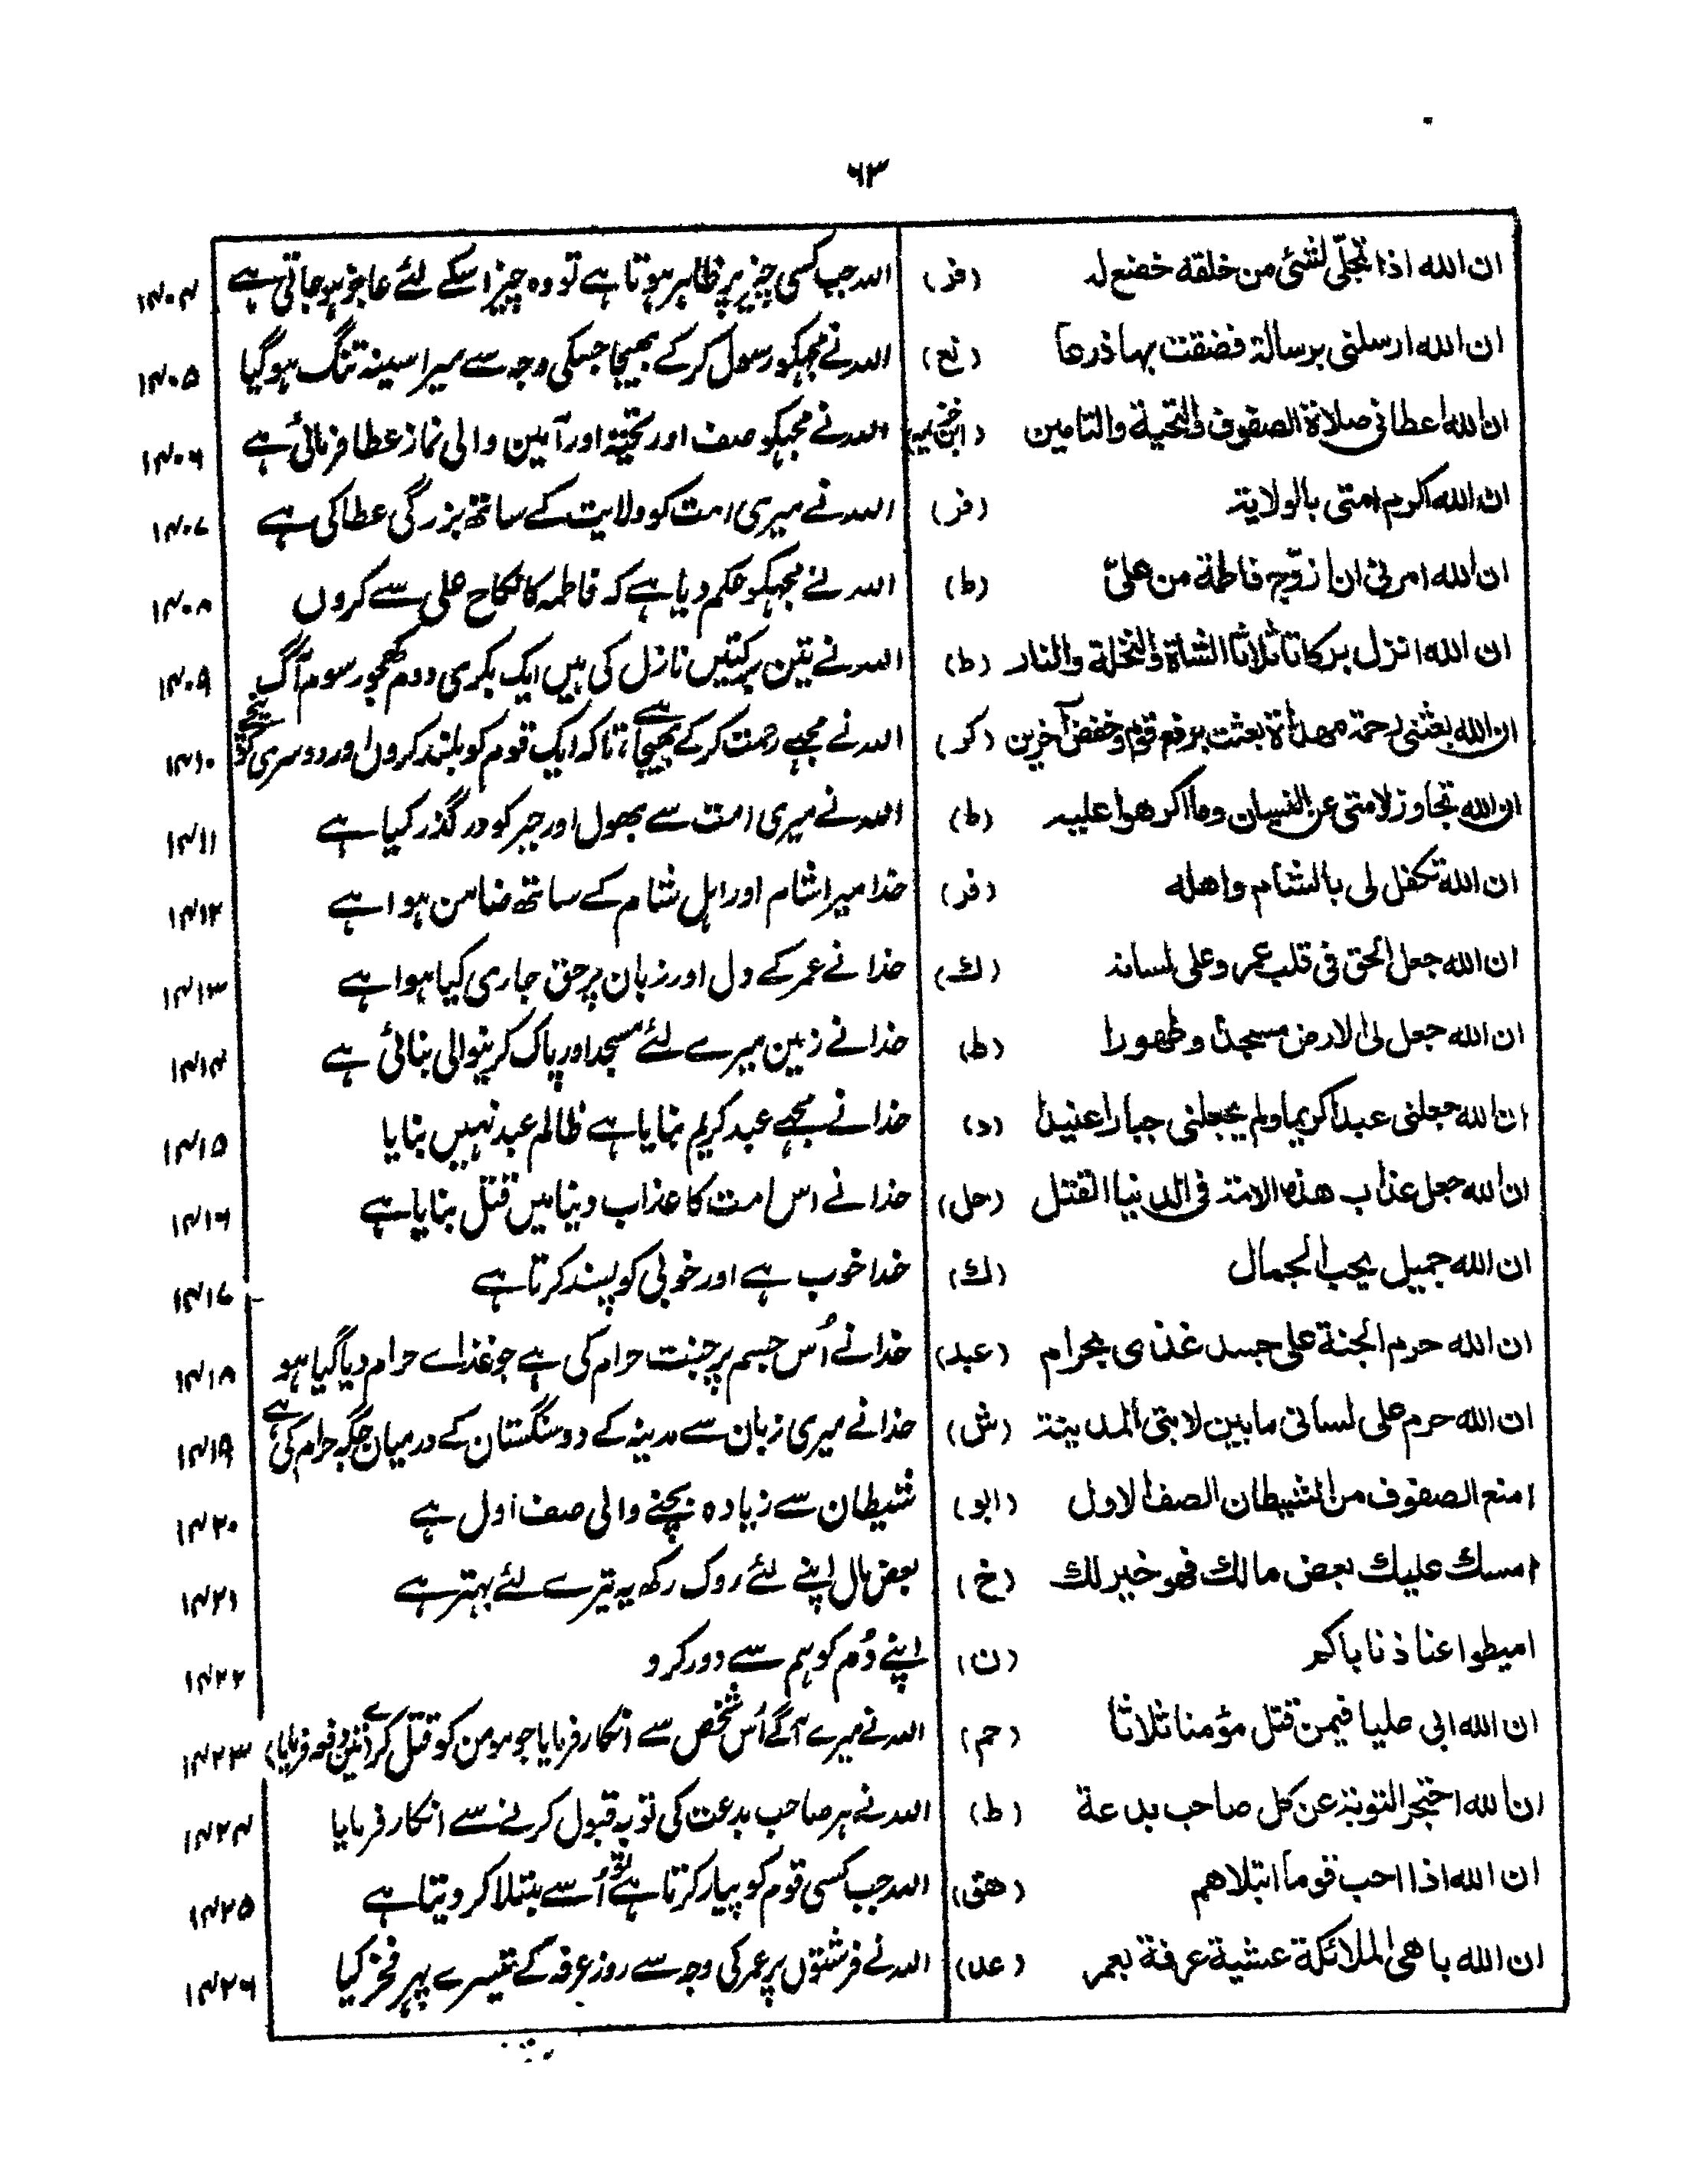 ۶۳
ان الله اذا تجلّى لشئ من خلقه خضع له (فر) اللہ جب کسی چیز پر ظاہر ہوتا ہے تو وہ چیز اسکے لئے عاجز ہو جاتی ہے ۱۴۰۴
ان الله ارسلنى برسالة فضقت بها ذرعا (نع) اللہ نے مجہکو رسول کر کے بھیجا جسکی وجہ سے میرا سینہ تنگ ہو گیا ۱۴۰۵
ان الله اعطانى صلاة الصفوف والتحية والتامين (ابن خزیمہ) اللہ نے مجہکو صف اور تحیّۃ اور آمین والی نماز عطا فرمائی ہے ۱۴۰۶
ان الله اكرم امتى بالولاية (فر) اللہ نے میری امت کو ولایت کے ساتھ بزرگی عطا کی ہے ۱۴۰۷
ان الله امرنى ان ازوّج فاطمة من علىّ (ط) اللہ نے مجہکو حکم دیا ہے کہ فاطمہ کا نکاح علی سے کروں ۱۴۰۸
ان الله انزل بركاتا ثلاثا الشاة والنخلة والنار (ط) اللہ نے تین برکتیں نازل کی ہیں ایک بکری دوم کھجور سوم آگ ۱۴۰۹
ان الله بعثنى رحمة مهداة بعثت برفع قوم وخفض آخرين (کر) اللہ نے مجہے رحمت کر کے بھیجا ہے تاکہ ایک قوم کو بلند کروں اور دوسری کو نیچے ۱۴۱۰
ان الله تجاوز لامتى عن النسيان وما اكرهوا عليه (ط) اللہ نے میری امت سے بھول اور جبر کو درگذر کیا ہے ۱۴۱۱
ان الله تكفل لى بالشام واهله (فر) خدا میرا شام اور اہل شام کے ساتھ ضامن ہوا ہے ۱۴۱۲
ان الله جعل الحق فى قلب عمر وعلى لسانه (ك) خدا نے عمر کے دل اور زبان پر حق جاری کیا ہوا ہے ۱۴۱۳
ان الله جعل لى الارض مسجدا وطهورا (ط) خدا نے زمین میرے لئے مسجد اور پاک کرنیوالی بنائی ہے ۱۴۱۴
ان الله جعلنى عبدا كريما ولم يجعلنى جبارا عنيدا (د) خدا نے مجہے عبد کریم بنایا ہے ظالم عبد نہیں بنایا ۱۴۱۵
ان الله جعل عذاب هذه الامة فى الدنيا القتل (حل) خدا نے اس امت کا عذاب دنیا میں قتل بنایا ہے ۱۴۱۶
ان الله جميل يحب الجمال (ك) خدا خوب ہے اور خوبی کو پسند کرتا ہے ۱۴۱۷
ان الله حرم الجنة على جسد غذى بحرام (عبد) خدا نے اُس جسم پر جنت حرام کی ہے جو غذاے حرام دیا گیا ہو ۱۴۱۸
ان الله حرم على لسانى مابين لابتى المدينة (ش) خدا نے میری زبان سے مدینہ کے دو سنگستان کے درمیان جگہ حرام کی ہے ۱۴۱۹
امنع الصفوف من الشيطان الصف الاول (ابو) شیطان سے زیادہ بچنے والی صف اول ہے ۱۴۲۰
امسك عليك بعض مالك فهو خير لك (خ) بعض مال اپنے لئے روک رکھ یہ تیرے لئے بہتر ہے ۱۴۲۱
اميطوا عنا ذناباكم (ن) اپنے دُم کو ہم سے دور کرو ۱۴۲۲
ان الله ابى عليا فيمن قتل مؤمنا ثلاثا (حم) اللہ نے میرے آگے اُس شخص سے انکار فرمایا جو مومن کو قتل کرے (تین دفعہ فرمایا) ۱۴۲۳
ان الله احتجر التوبة عن كل صاحب بدعة (ط) اللہ نے ہر صاحب بدعت کی توبہ قبول کرنے سے انکار فرمایا ۱۴۲۴
ان الله اذا احب قوما ابتلاهم (هق) اللہ جب کسی قوم کو پیار کرتا ہے تو اُسے مبتلا کر دیتا ہے ۱۴۲۵
ان الله باهى الملائكة عشية عرفة بعمر (عد) اللہ نے فرشتوں پر عمر کی وجہ سے روز عرفہ کے تیسرے پہر فخر کیا ۱۴۲۶